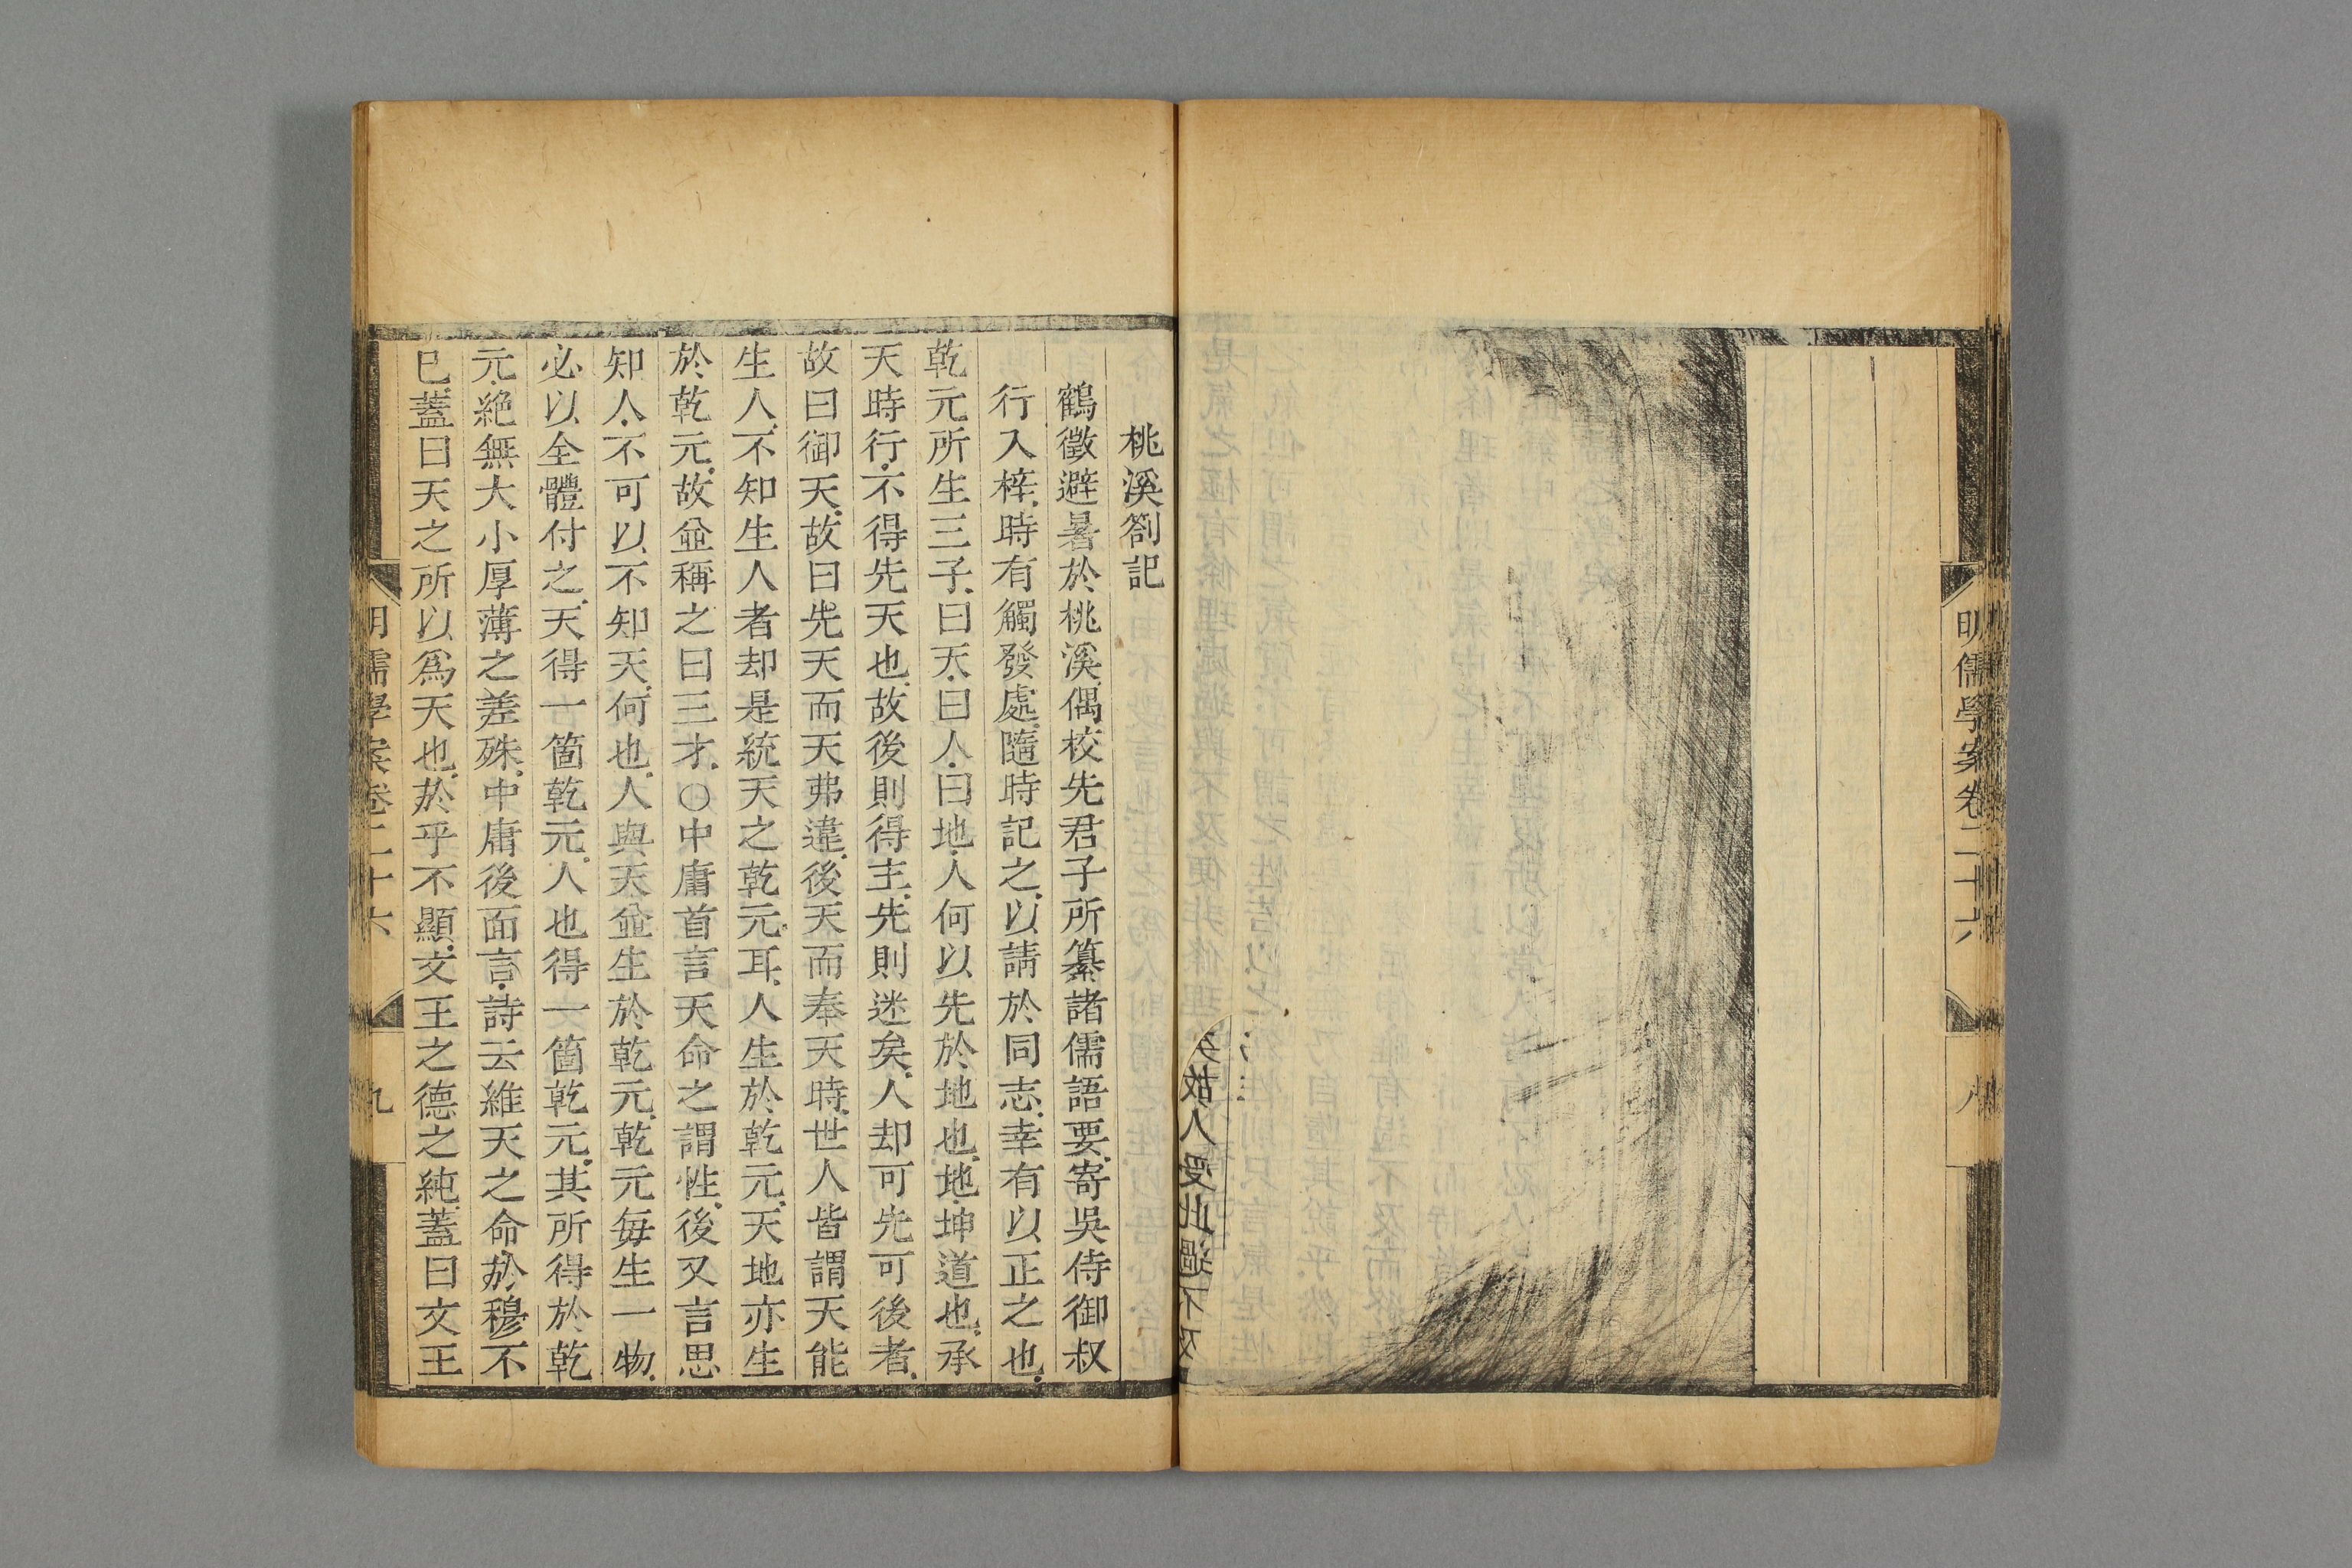 明儒學案卷二十六
八
桃溪劄記
鶴徵避暑於桃溪偶校先君子所纂諸儒語要寄吳侍御叔
行入梓時有觸發處隨時記之以請於同志幸有以正之也
乾元所生三子曰天曰人曰地人何以先於地也地坤道也承
天時行不得先天也故後則得主先則迷矣人却可先可後者
故曰御天故曰先天而天弗違後天而奉天時世人皆謂天能
生人不知生人者却是統天之乾元耳人生於乾元天地亦生
於乾元故並稱之曰三才○中庸首言天命之謂性後又言思
知人不可以不知天何也人與天並生於乾元乾元每生一物
必以全體付之天得一箇乾元人也得一箇乾元其所得於乾
元絶無大小厚薄之差殊中庸後面言詩云維天之命於穆不
已蓋曰天之所以爲天也於乎不顯文王之德之純蓋曰文王
明儒學案卷二十六
九